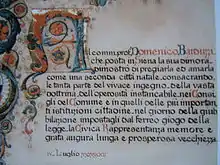 Al comm. prof. Domenico Barduzzi,
che posta in Siena la sua dimora,
si mostrò di pregiarla ed amarla
come una seconda città natale, consacrando-
le tanta parte del vivace ingegno, della vasta
dottrina, dell'operosità instancabile, nei Consi-
gli del Comune e in quelli delle più importan-
ti istituzioni cittadine, nel giorno della giu-
bilazione impostagli dal ferreo giogo della
legge, la Civica Rappresentanza memore e
grata augura lunga e prosperosa vecchiezza
IV. Luglio